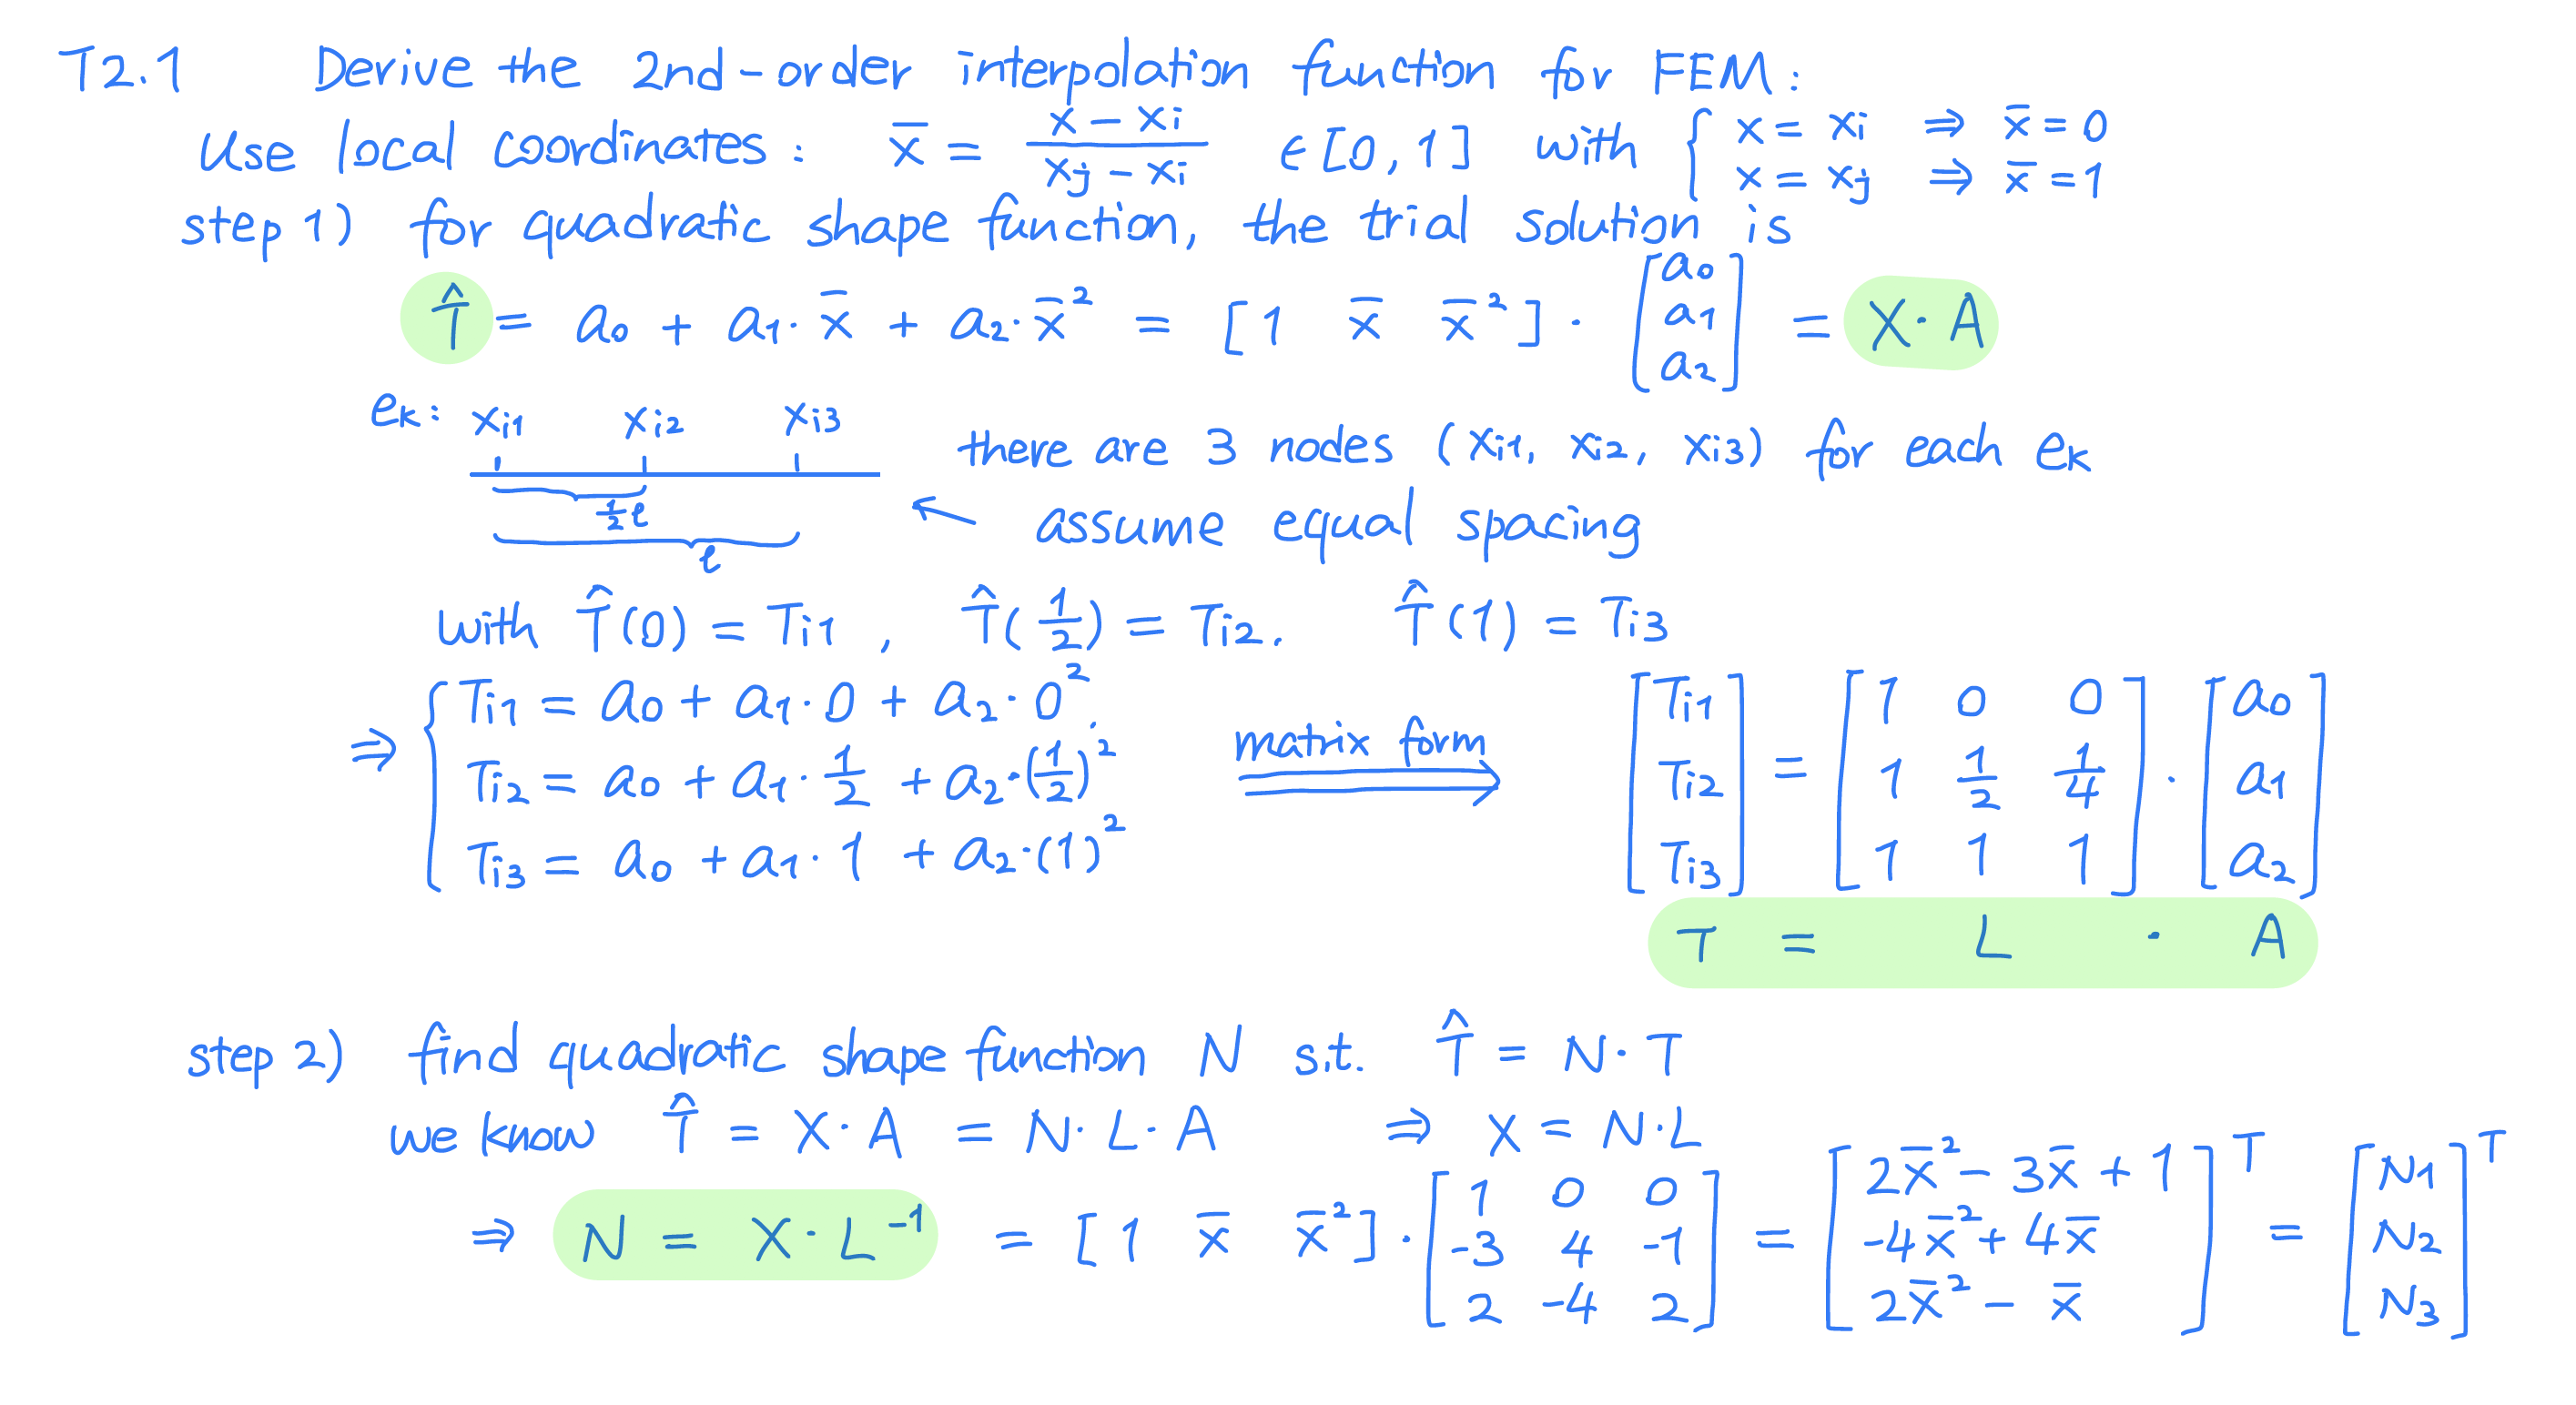 T2.1 Derive the 2nd-order interpolation function for FEM:
Use local coordinates: x̄ = (x - xi)/(xj - xi) ∈ [0, 1] with { x = xi ⇒ x̄ = 0
x = xj ⇒ x̄ = 1
step 1) for quadratic shape function, the trial solution is
T̂ = a0 + a1· x̄ + a2· x̄² = [1 x̄ x̄²] · [a0 a1 a2] = X · A
ek: xi1 xi2 xi3
there are 3 nodes (xi1, xi2, xi3) for each ek
½ℓ
← assume equal spacing
ℓ
with T̂(0) = Ti1 , T̂(½) = Ti2. T̂(1) = Ti3
⇒ { Ti1 = a0 + a1·0 + a2·0².
Ti2 = a0 + a1·½ + a2·(½)²
Ti3 = a0 + a1·1 + a2·(1)²
matrix form
[Ti1 Ti2 Ti3] = [1 0 0; 1 ½ ¼; 1 1 1] · [a0 a1 a2]
T = L · A
step 2) find quadratic shape function N s.t. T̂ = N · T
we know T̂ = X · A = N · L · A ⇒ X = N · L
⇒ N = X · L⁻¹ = [1 x̄ x̄²] · [1 0 0; -3 4 -1; 2 -4 2] = [2x̄² - 3x̄ + 1; -4x̄² + 4x̄; 2x̄² - x̄]ᵀ = [N1 N2 N3]ᵀ